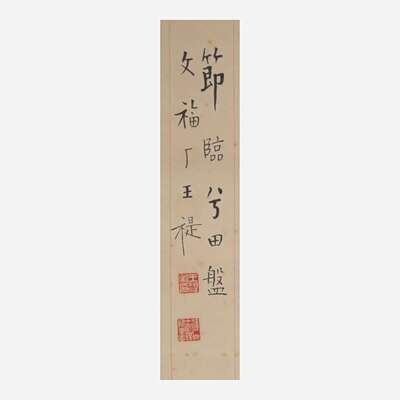 節臨兮田盤
文福厂王禔